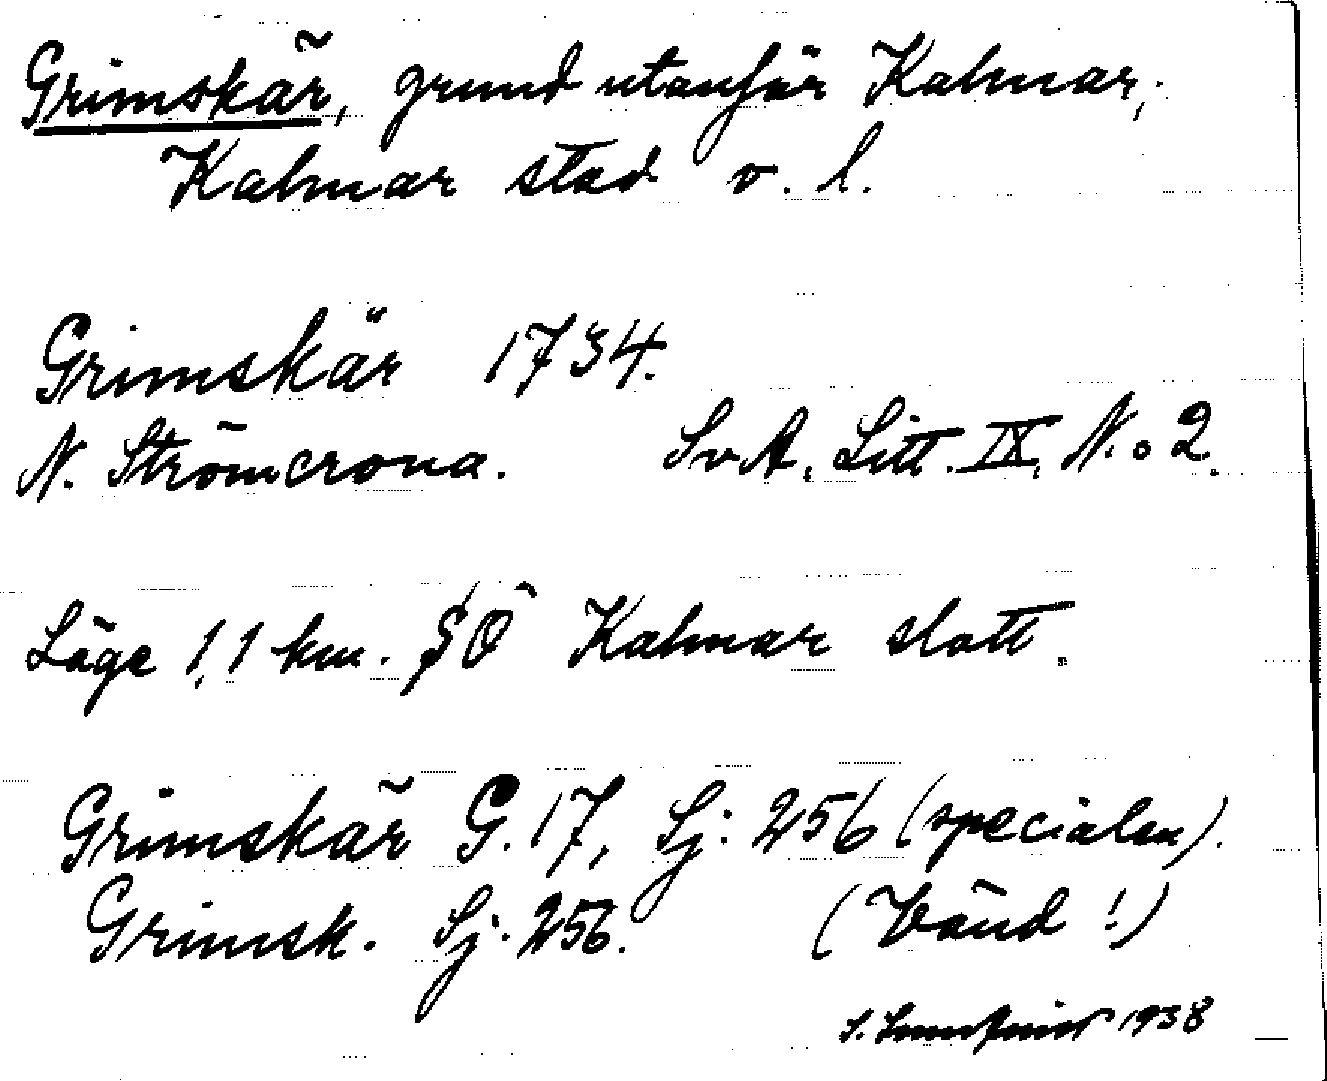 Grimskär, grund utanför Kalmar,
Kalmar stad v. l.
Grimskär 1734.
N. Strömcrona. SvA. Litt. IX, N.o 2.
Läge 1,1 km. SÖ Kalmar slott.
Grimskär G. 17, Sj: 256 (specialen).
Grimsk. Sj. 256. (Vänd!)
1938